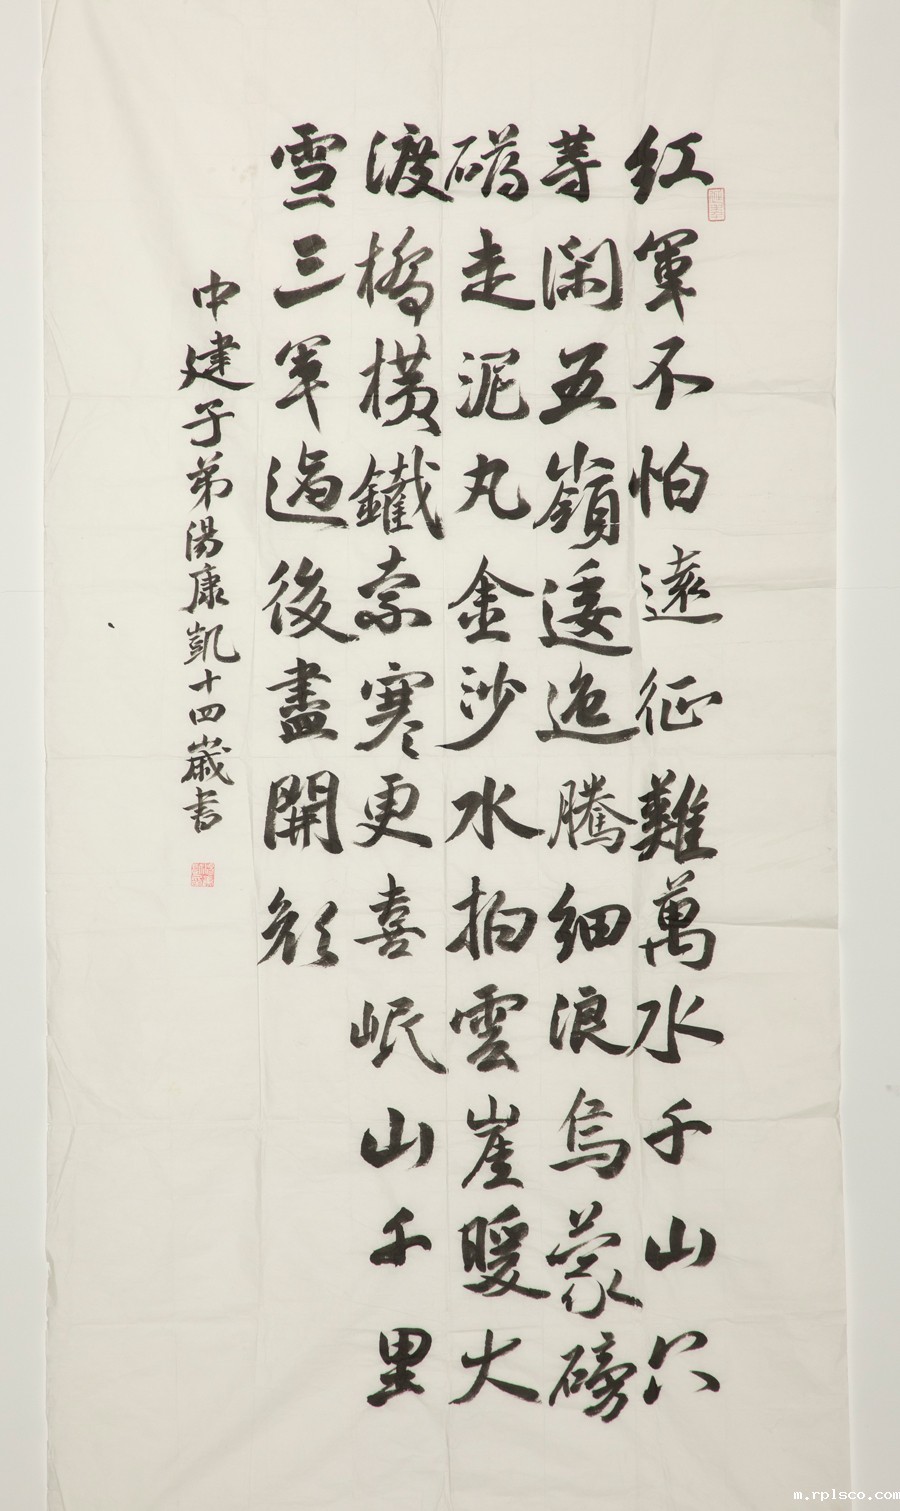 紅軍不怕遠征難萬水千山只
等閑五嶺逶迤騰細浪烏蒙磅
礴走泥丸金沙水拍雲崖暖大
渡橋橫鐵索寒更喜岷山千里
雪三軍過後盡開顏
中建子弟湯康凱十四歲書
m.rplsco.com